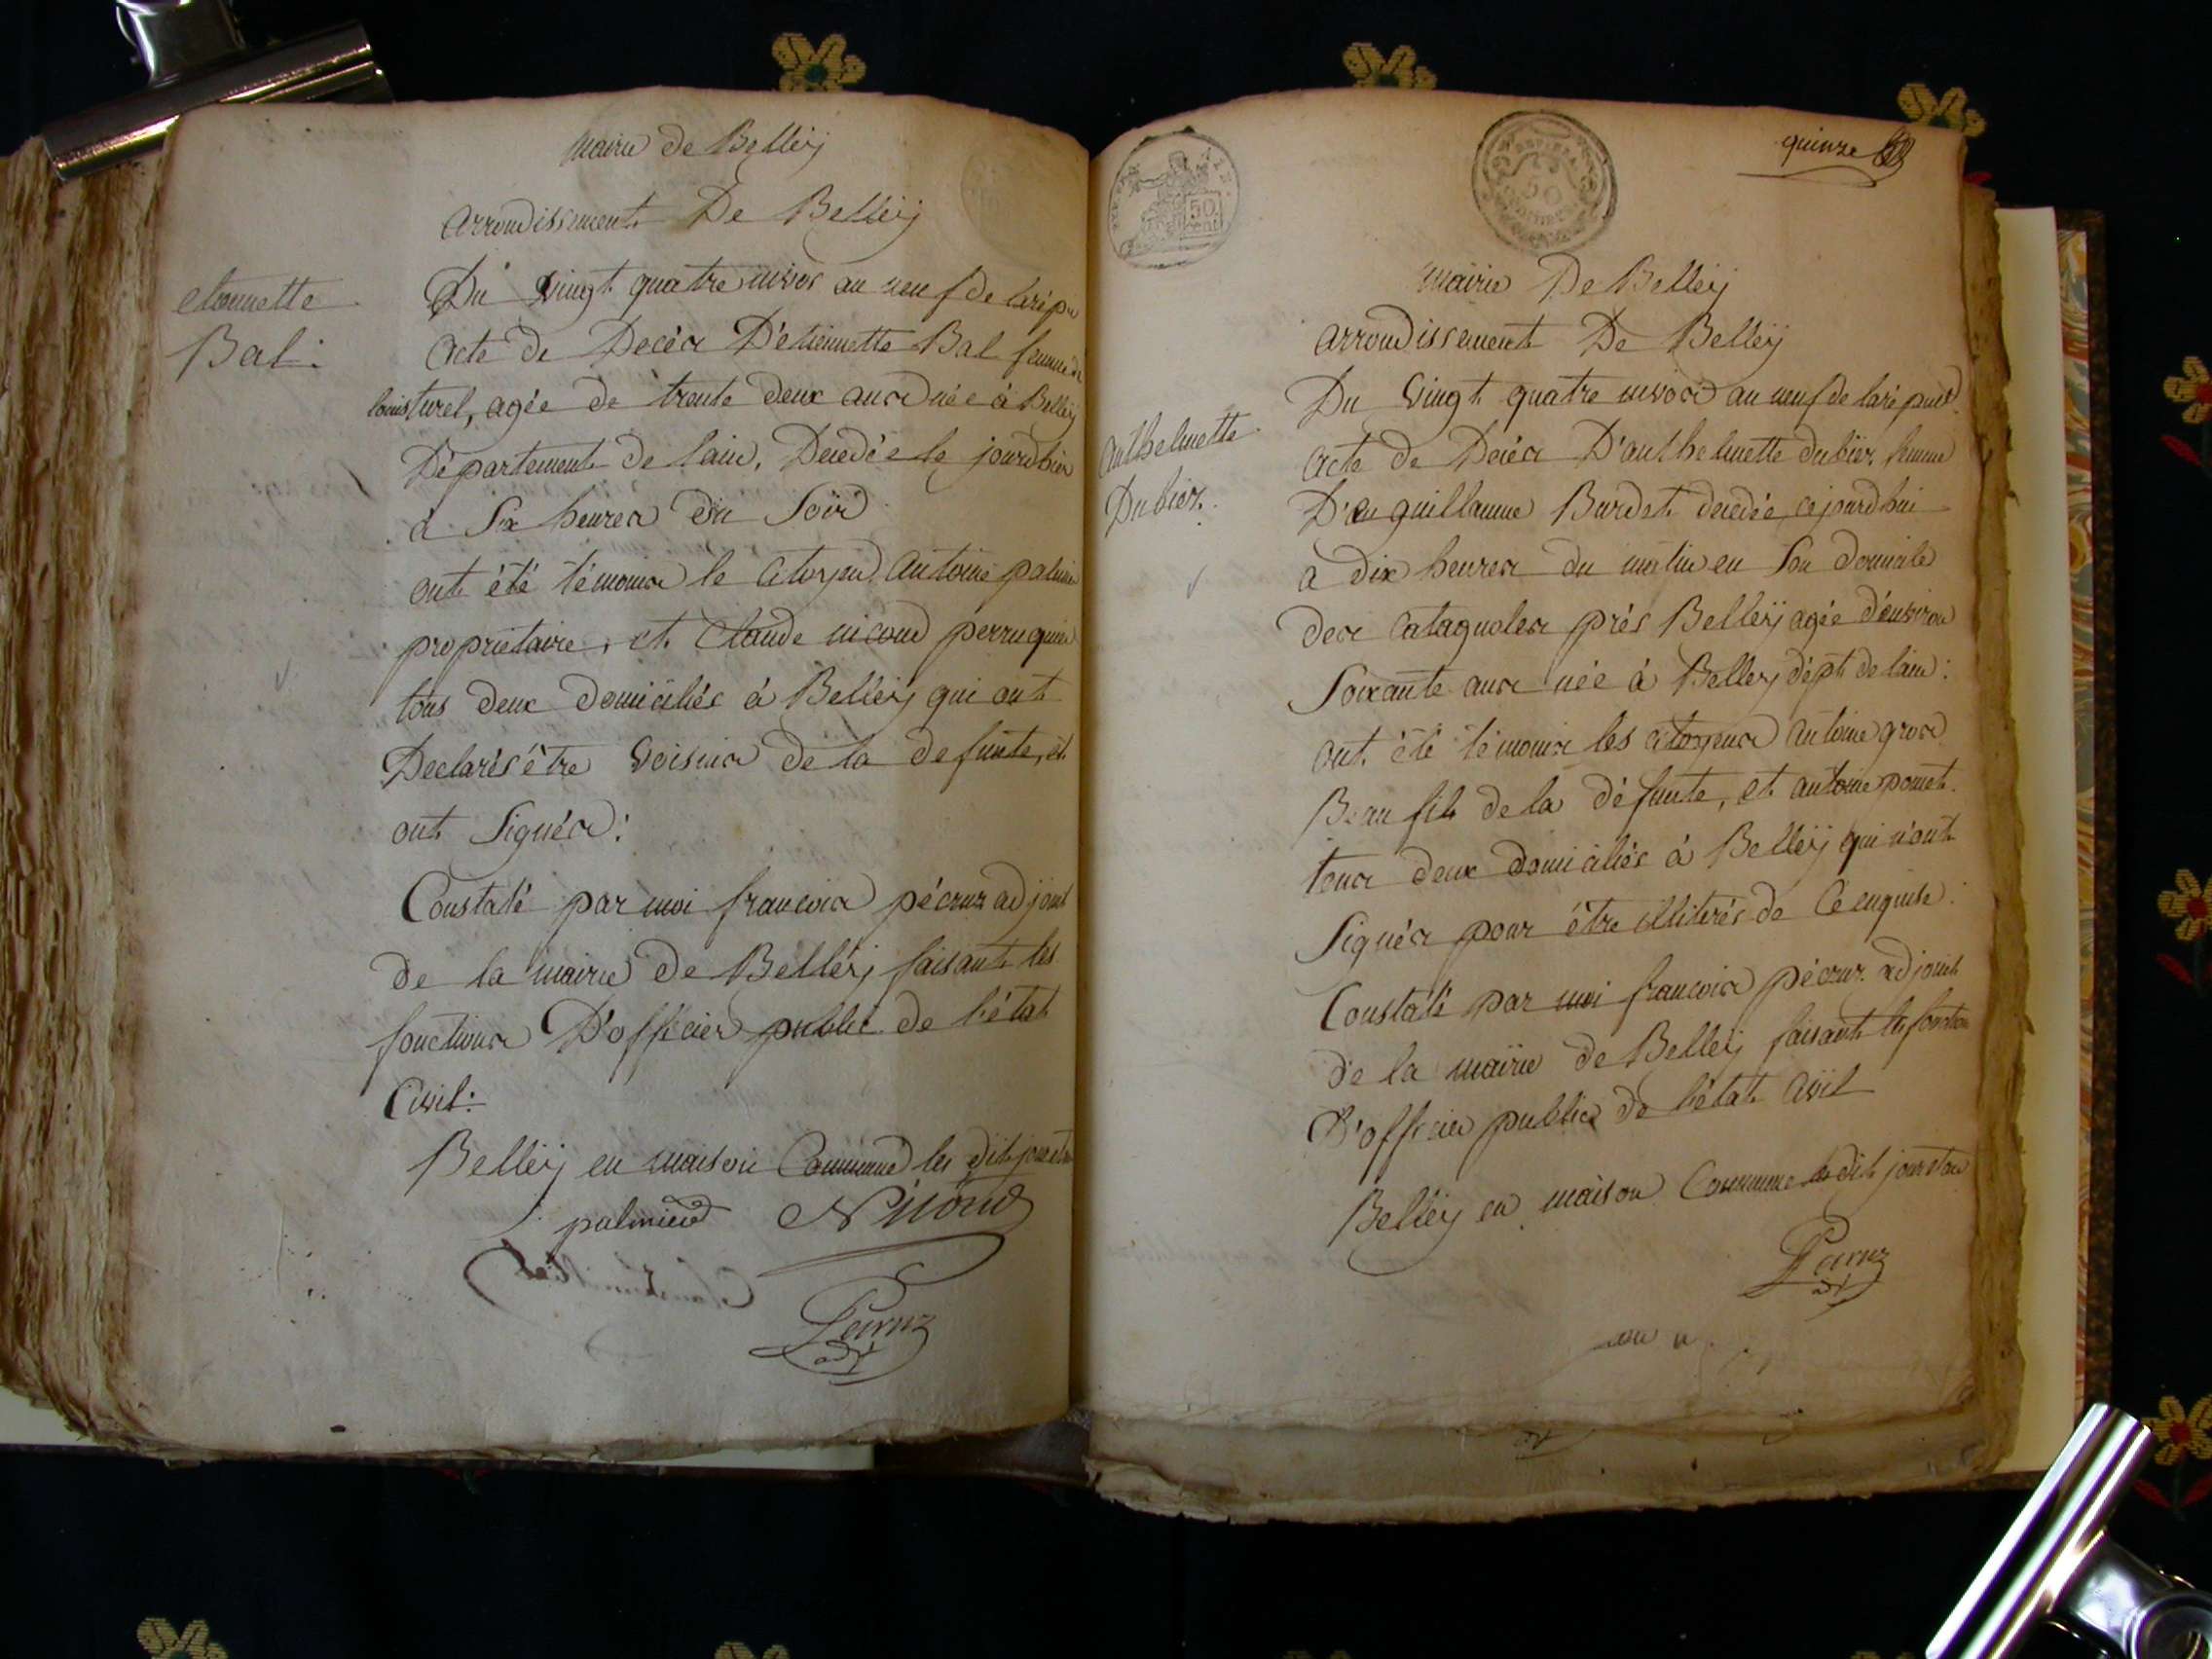 mairie de Belleÿ
arrondissement De Belleÿ
etiennette
Bal:
Du vingt quatre nivos an neuf de la répu
acte de Decés D'etiennette Bal femme de
louis turel, agée de trente deux ans née à Belleÿ
Département de lain, Decedée le jourdhier
à Six heures du Soir
ont été témoins le citoyen Antoine palmier
propriétaire, et Claude nicoud perruquier
tous deux domiciliés à Belleÿ qui ont
Declarés être voisins de la defunte, et
ont Signés:
Constaté par moi francois pécruz adjoint
de la mairie de Belleÿ faisant les
fonctions D'officier public de l'état
Civil:
Belleÿ en maison Commune les dit jour et an
palmier Nicoud
Pecruz
adjt
50
cent
50
quinze
mairie De Belleÿ
arrondissement De Belleÿ
Anthelmette
Dubier.
Du vingt quatre nivos an neuf de la répub
acte de Decés D'anthelmette dubier femme
D'en guillaume Burdet decedée cejourdhui
a dix heures du matin en Son domicile
des Catagnoles prés Belleÿ agée d'environ
Soixante ans née à Belleÿ dépt de lain:
ont été témoins les citoyens antoine gros
Beau fils de la défunte, et antoine pomet
tous deux domiciliés à Belleÿ qui n'ont
Signés pour être illiterés de ce enquise:
Constaté par moi francois pécruz adjoint
de la mairie de Belleÿ faisant les fonction
D'officier public de l'état civil
Belleÿ en maison Commune les dit jour et an
Pecruz
adjt